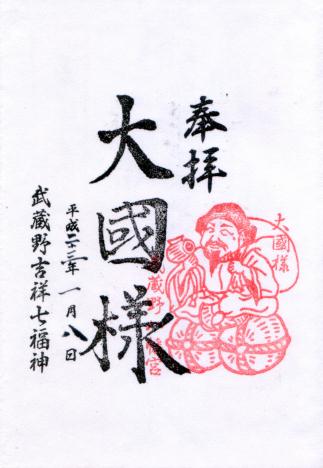 奉拝
大國様
大國様
武蔵野八幡宮
平成二十三年一月八日
武蔵野吉祥七福神